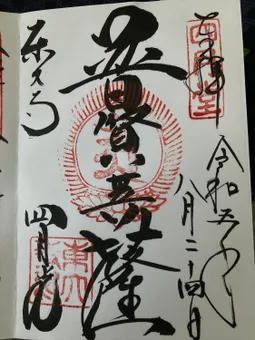 奉拝
令和五年
八月二十四日
普賢菩薩
東大寺
四月堂